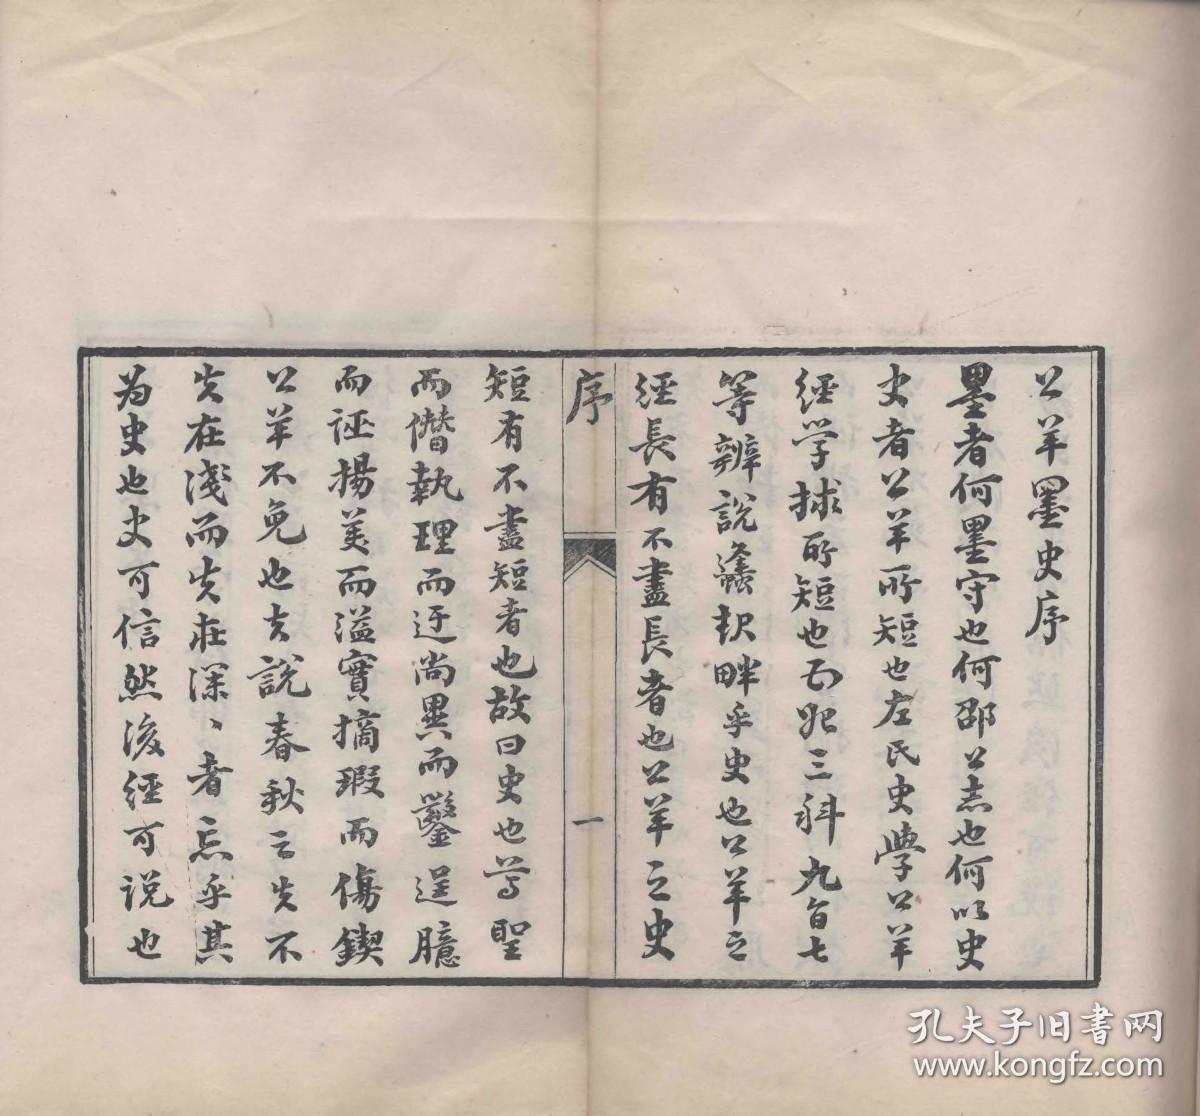 公羊墨史序
墨者何墨守也何邵公志也何以史
史者公羊所短也左氏史學公羊
經学採所短也而非三科九旨七
等辨說蠭起畔乎史也公羊之
經長有不盡長者也公羊之史
序
一
短有不盡短者也故曰史也尊聖
而僭執理而迂尚異而鑿逞臆
而誣揚美而溢實摘瑕而傷鍥
公羊不免也夫說春秋之失不
失在淺而失在深、者忘乎其
為史也史可信然後經可說也
孔夫子旧書网
www.kongfz.com